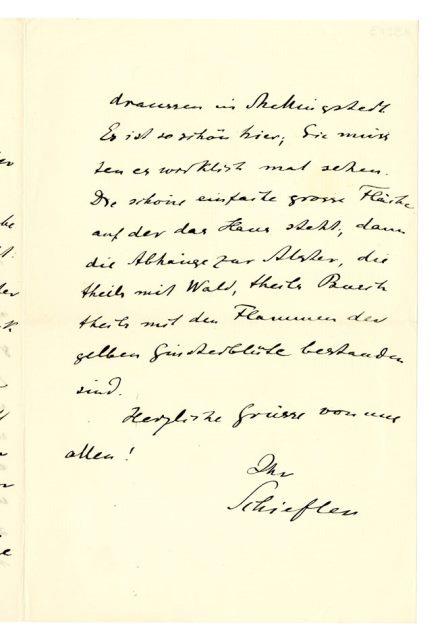 draussen in Mellingstedt.
Es ist so schön hier; Sie müss
ten es wirklich mal sehen.
Die schöne einfache grosse Fläche
auf der das Haus steht, dann
die Abhänge zur Alster, die
theils mit Wald, theils Busch
theils mit den Flammen der
gelben Ginsterblüte bestanden
sind.
Herzliche Grüsse von uns
allen!
Ihr
Schiefler